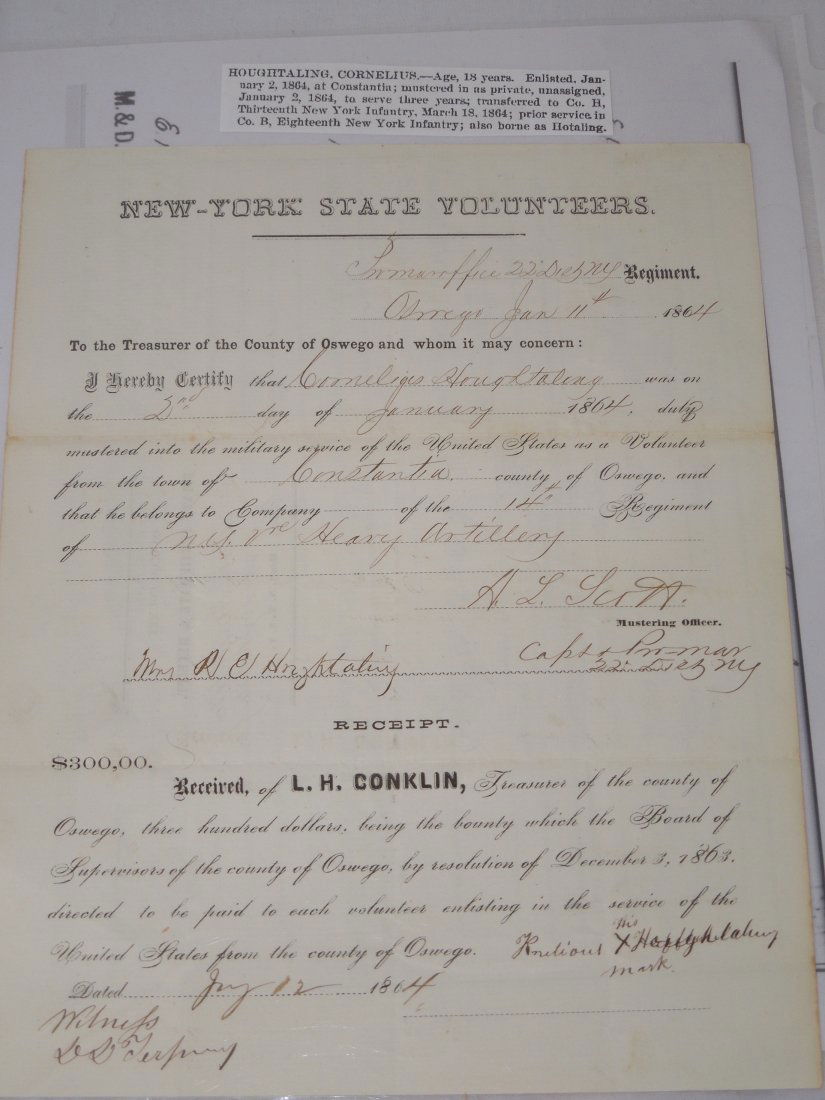 HOUGHTALING, CORNELIUS.—Age, 18 years. Enlisted, Jan-
uary 2, 1864, at Constantia; mustered in as private, unassigned,
January 2, 1864, to serve three years; transferred to Co. H,
Thirteenth New York Infantry, March 18, 1864; prior service in
Co. B, Eighteenth New York Infantry; also borne as Hotaling.
M. & D.
NEW-YORK STATE VOLUNTEERS.
Promar office 22 Dist NY Regiment.
Oswego Jan 11th 1864
To the Treasurer of the County of Oswego and whom it may concern:
I Hereby Certify that Cornelius Houghtaling was on
the 2nd day of January 1864, duly
mustered into the military service of the United States as a Volunteer
from the town of Constantia county of Oswego, and
that he belongs to Company of the 14th Regiment
of Heavy Artillery
A. L. Scott.
Mustering Officer.
Capt & Pro-mar
22 Dist NY
Mrs R C Houghtaling
RECEIPT.
$300,00.
Received, of L. H. CONKLIN, Treasurer of the county of
Oswego, three hundred dollars, being the bounty which the Board of
Supervisors of the county of Oswego, by resolution of December 3, 1863.
directed to be paid to each volunteer enlisting in the service of the
United States from the county of Oswego.
his
Knelious X Houghtaling
mark.
Dated Jay 12 1864
Witness